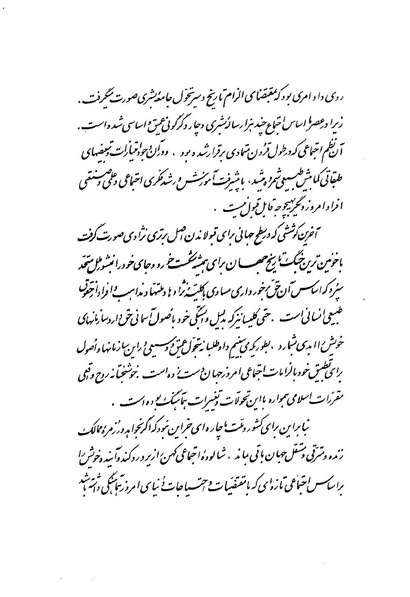 روی داد امری بود که بمقتضای الزام تاریخ و سیر تحول جامعه بشری صورت میگرفت.
زیرا در عصر ما اساس اجتماع چند هزار ساله بشری دچار دگرگونی عمیق و اساسی شده است.
آن نظم اجتماعی که در طول قرون متمادی برقرار شده بود، و در آن وجود امتیازات و تبعیضهای
طبقاتی کمابیش طبیعی شمرده میشد، با پیشرفت آموزش و رشد فکری اجتماعی و علمی و صنعتی
افراد امروز دیگر بهیچوجه قابل قبول نیست.
آخرین کوششی که در سطح جهانی برای قبولاندن اصل برتری نژادی صورت گرفت
با خونین ترین جنگ تاریخ جهان برای همیشه شکست خورد و جای خود را به منشور ملل متحد
سپرد که اساس آن حق برخورداری مساوی با کلیه نژادها و ملتها و مذاهب و افراد از حقوق
طبیعی انسانی است. حتی کلیسا نیز که بدلیل وابستگی خود باصول آسمانی حق دارد سازمانهای
خویش را ابدی شمارد، بطوریکه می بینیم داوطلبانه تحول عمیق و وسیعی در این سازمانها و اصول
برای تطبیق خود با الزامات اجتماعی امروز جهان داده است. خوشبختانه روح واقعی
مقررات اسلامی همواره با این تحولات و تغییرات هماهنگ بوده است.
بنابراین برای کشور و ملت ما چاره ای جز این نبود که اگر بخواهد در زمره ممالک
زنده و مترقی و مستقل جهان باقی بماند، شالوده اجتماعی کهن را زیر و رو کند و آینده خویش را
بر اساس اجتماعی تازه ای که با مقتضیات و احتیاجات دنیای امروز هماهنگی داشته باشد